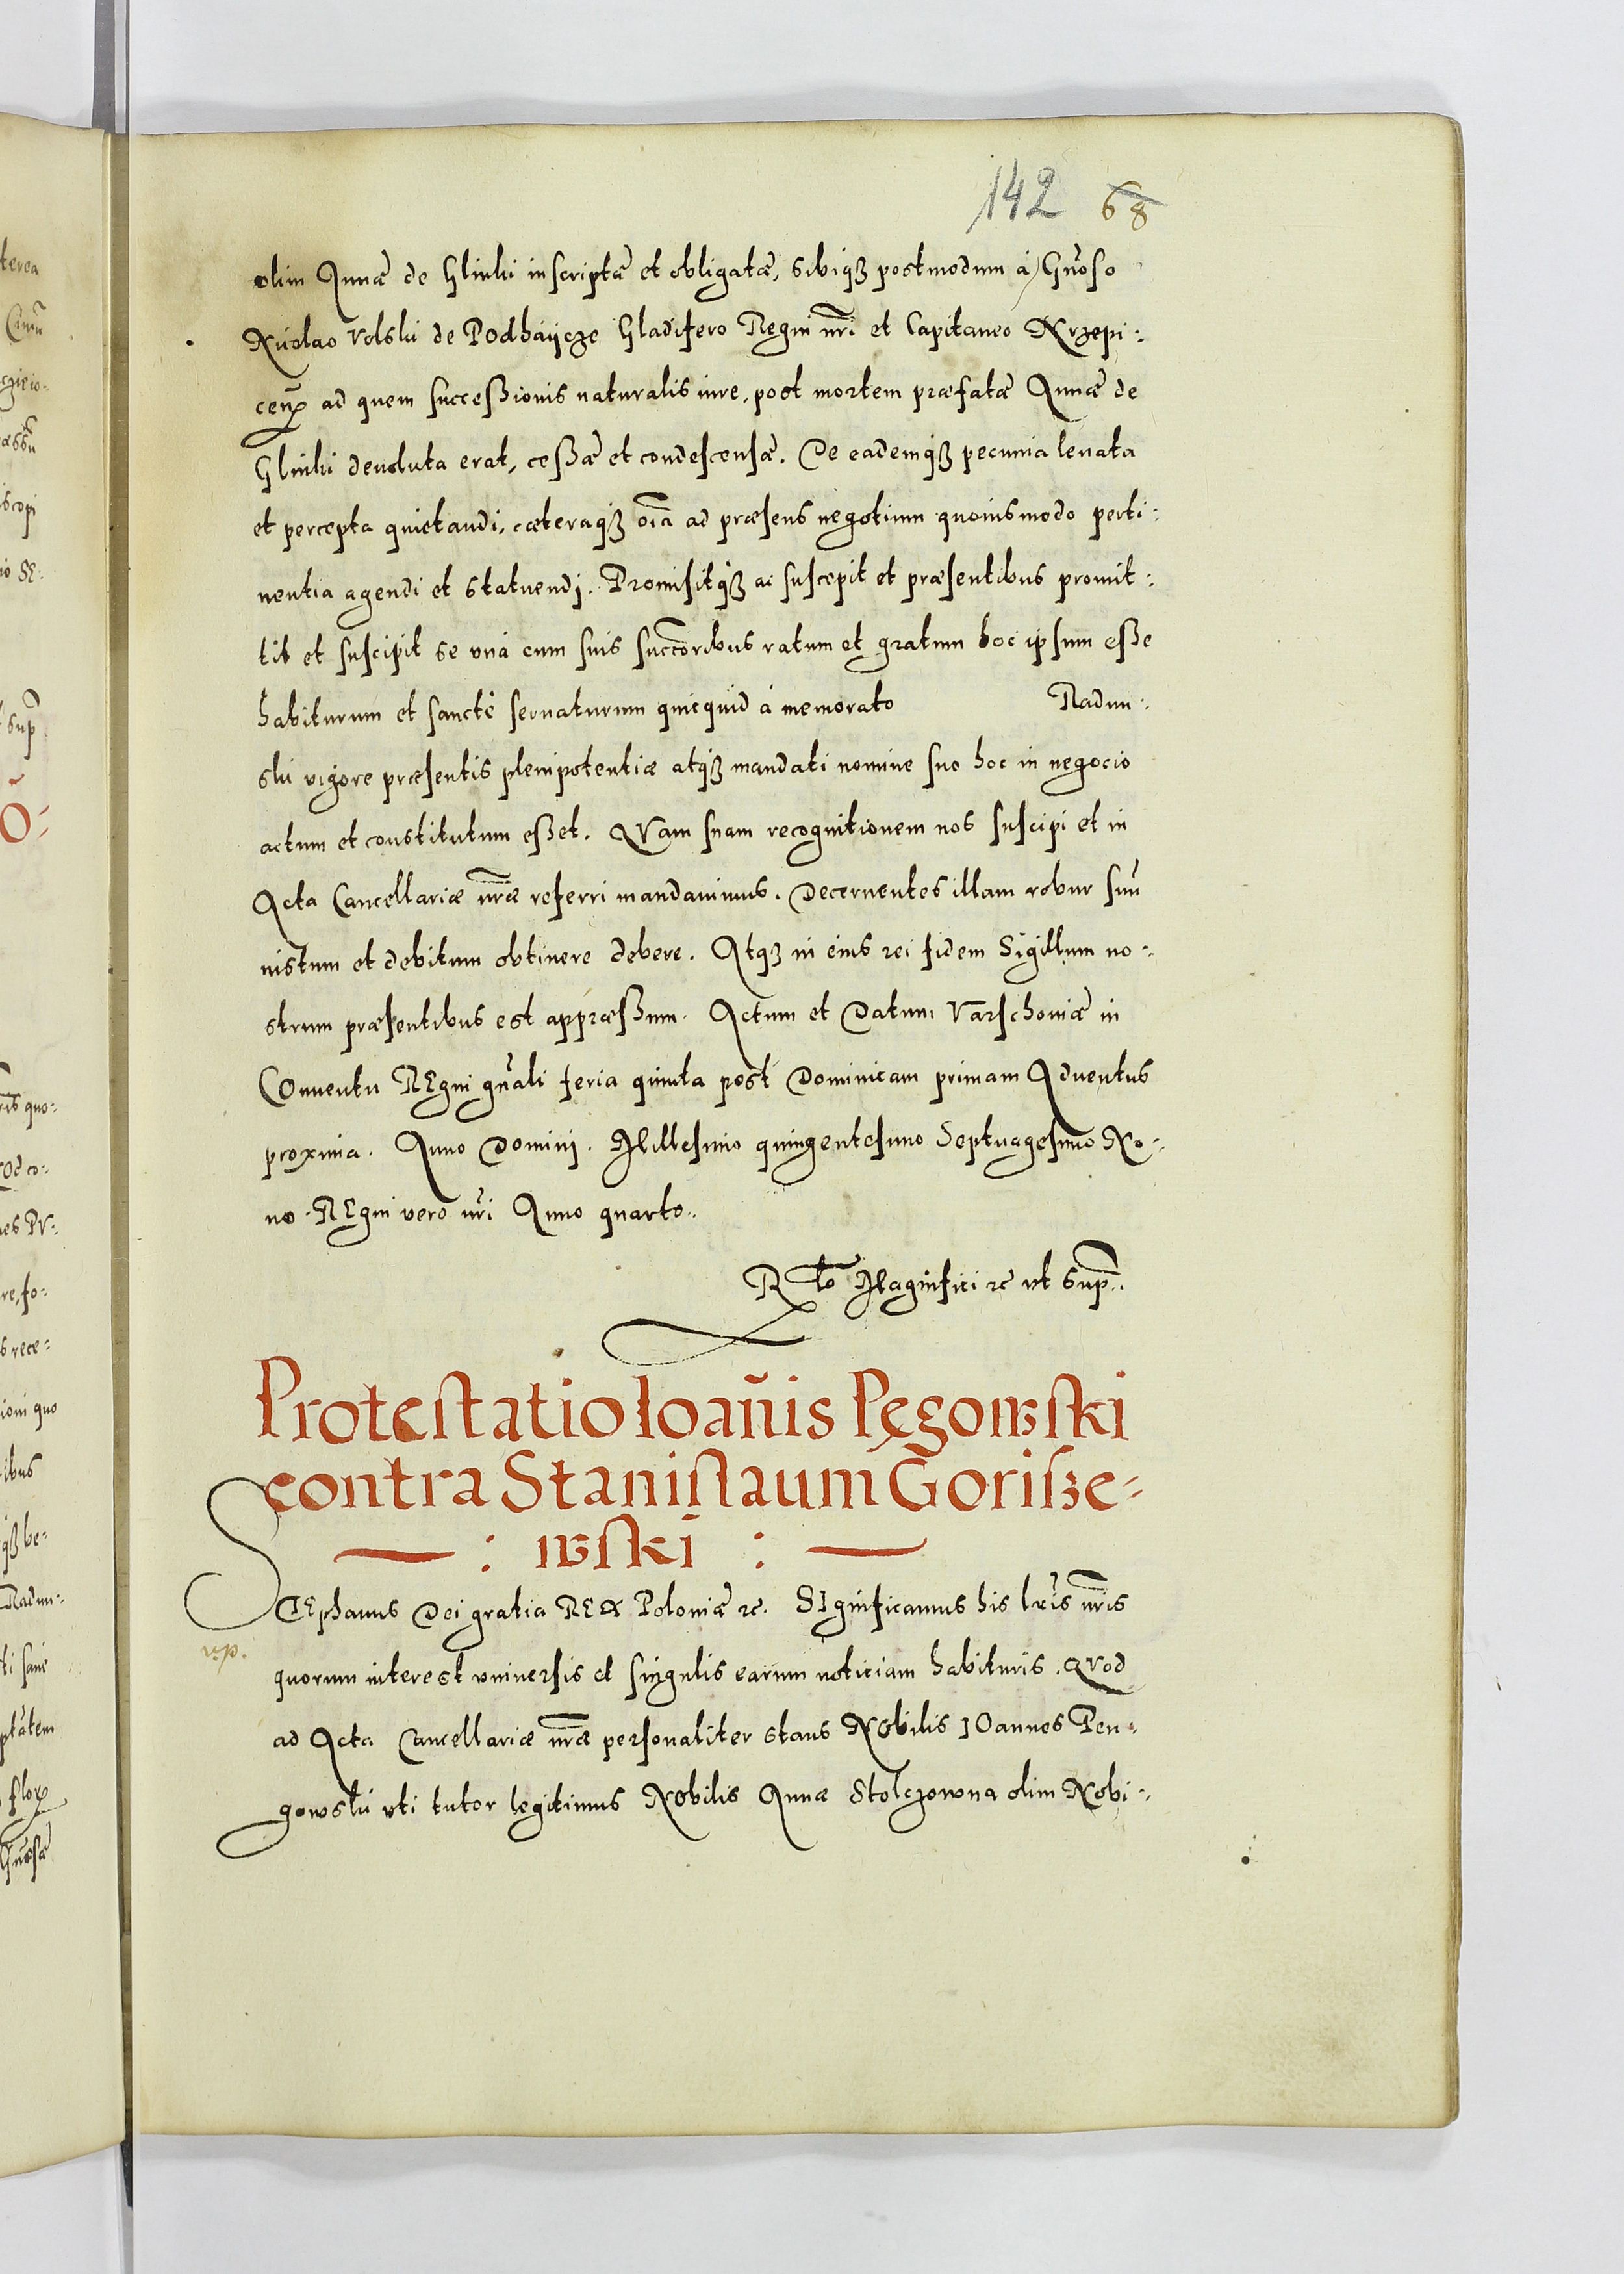 142 68
olim Annæ de Glinki inscriptæ et obligatæ, sibiqȝ postmodum à Gn̄oso
Nicolao Volski de Podhaÿcze Gladifero Regni nr̄i et Capitaneo Krzepi:
cen̄ ad quem successionis naturalis iure, post mortem præfatæ Annæ de
Glinki deuoluta erat, cessæ et condescensæ. De eademqȝ pecunia leuata
et percepta quietandi, cæteraqȝ oīa ad præsens negotium quouismodo perti:
nentia agendi et statuendj. Promisitqȝ ac suscepit et præsentibus promit:
tit et suscipit se vnà cum suis succ̄oribus ratum et gratum hoc ipsum esse
habiturum et sanctè seruaturum quicquid à memorato Radun:
ski vigore præsentis plenipotentiæ atqȝ mandati nomine suo hoc in negocio
actum et constitutum esset. QVam suam recognitionem nos suscipi et in
Acta Cancellariæ nr̄æ referri mandauimus. Decernentes illam robur suū
iustum et debitum obtinere debere. Atqȝ in eius rei fidem Sigillum no:
strum præsentibus est appræssum. Actum et Datum Varschouiæ in
COnuentu REgni gn̄ali feria quinta post Dominicam primam Aduentus
proxima. Anno Dominj. Millesimo quingentesimo Septuagesimo No:
no. REgni vero nr̄i Anno quarto.
Rto Magnifici ꝛc vt sup.
Protestatio Ioan̄is Pęgowski
contra Stanislaum Gorisze-
: wski :
STEphanus Dei gratia REX Poloniæ ꝛc. SIgnificamus his lr̄is nr̄is
v.p.
quorum interest vniuersis et singulis earum noticiam habituris. QVod
ad Acta Cancellariæ nr̄æ personaliter stans NObilis IOannes Pen:
gowski vti tutor legitimus NObilis Annæ Stolczowna olim Nobi: